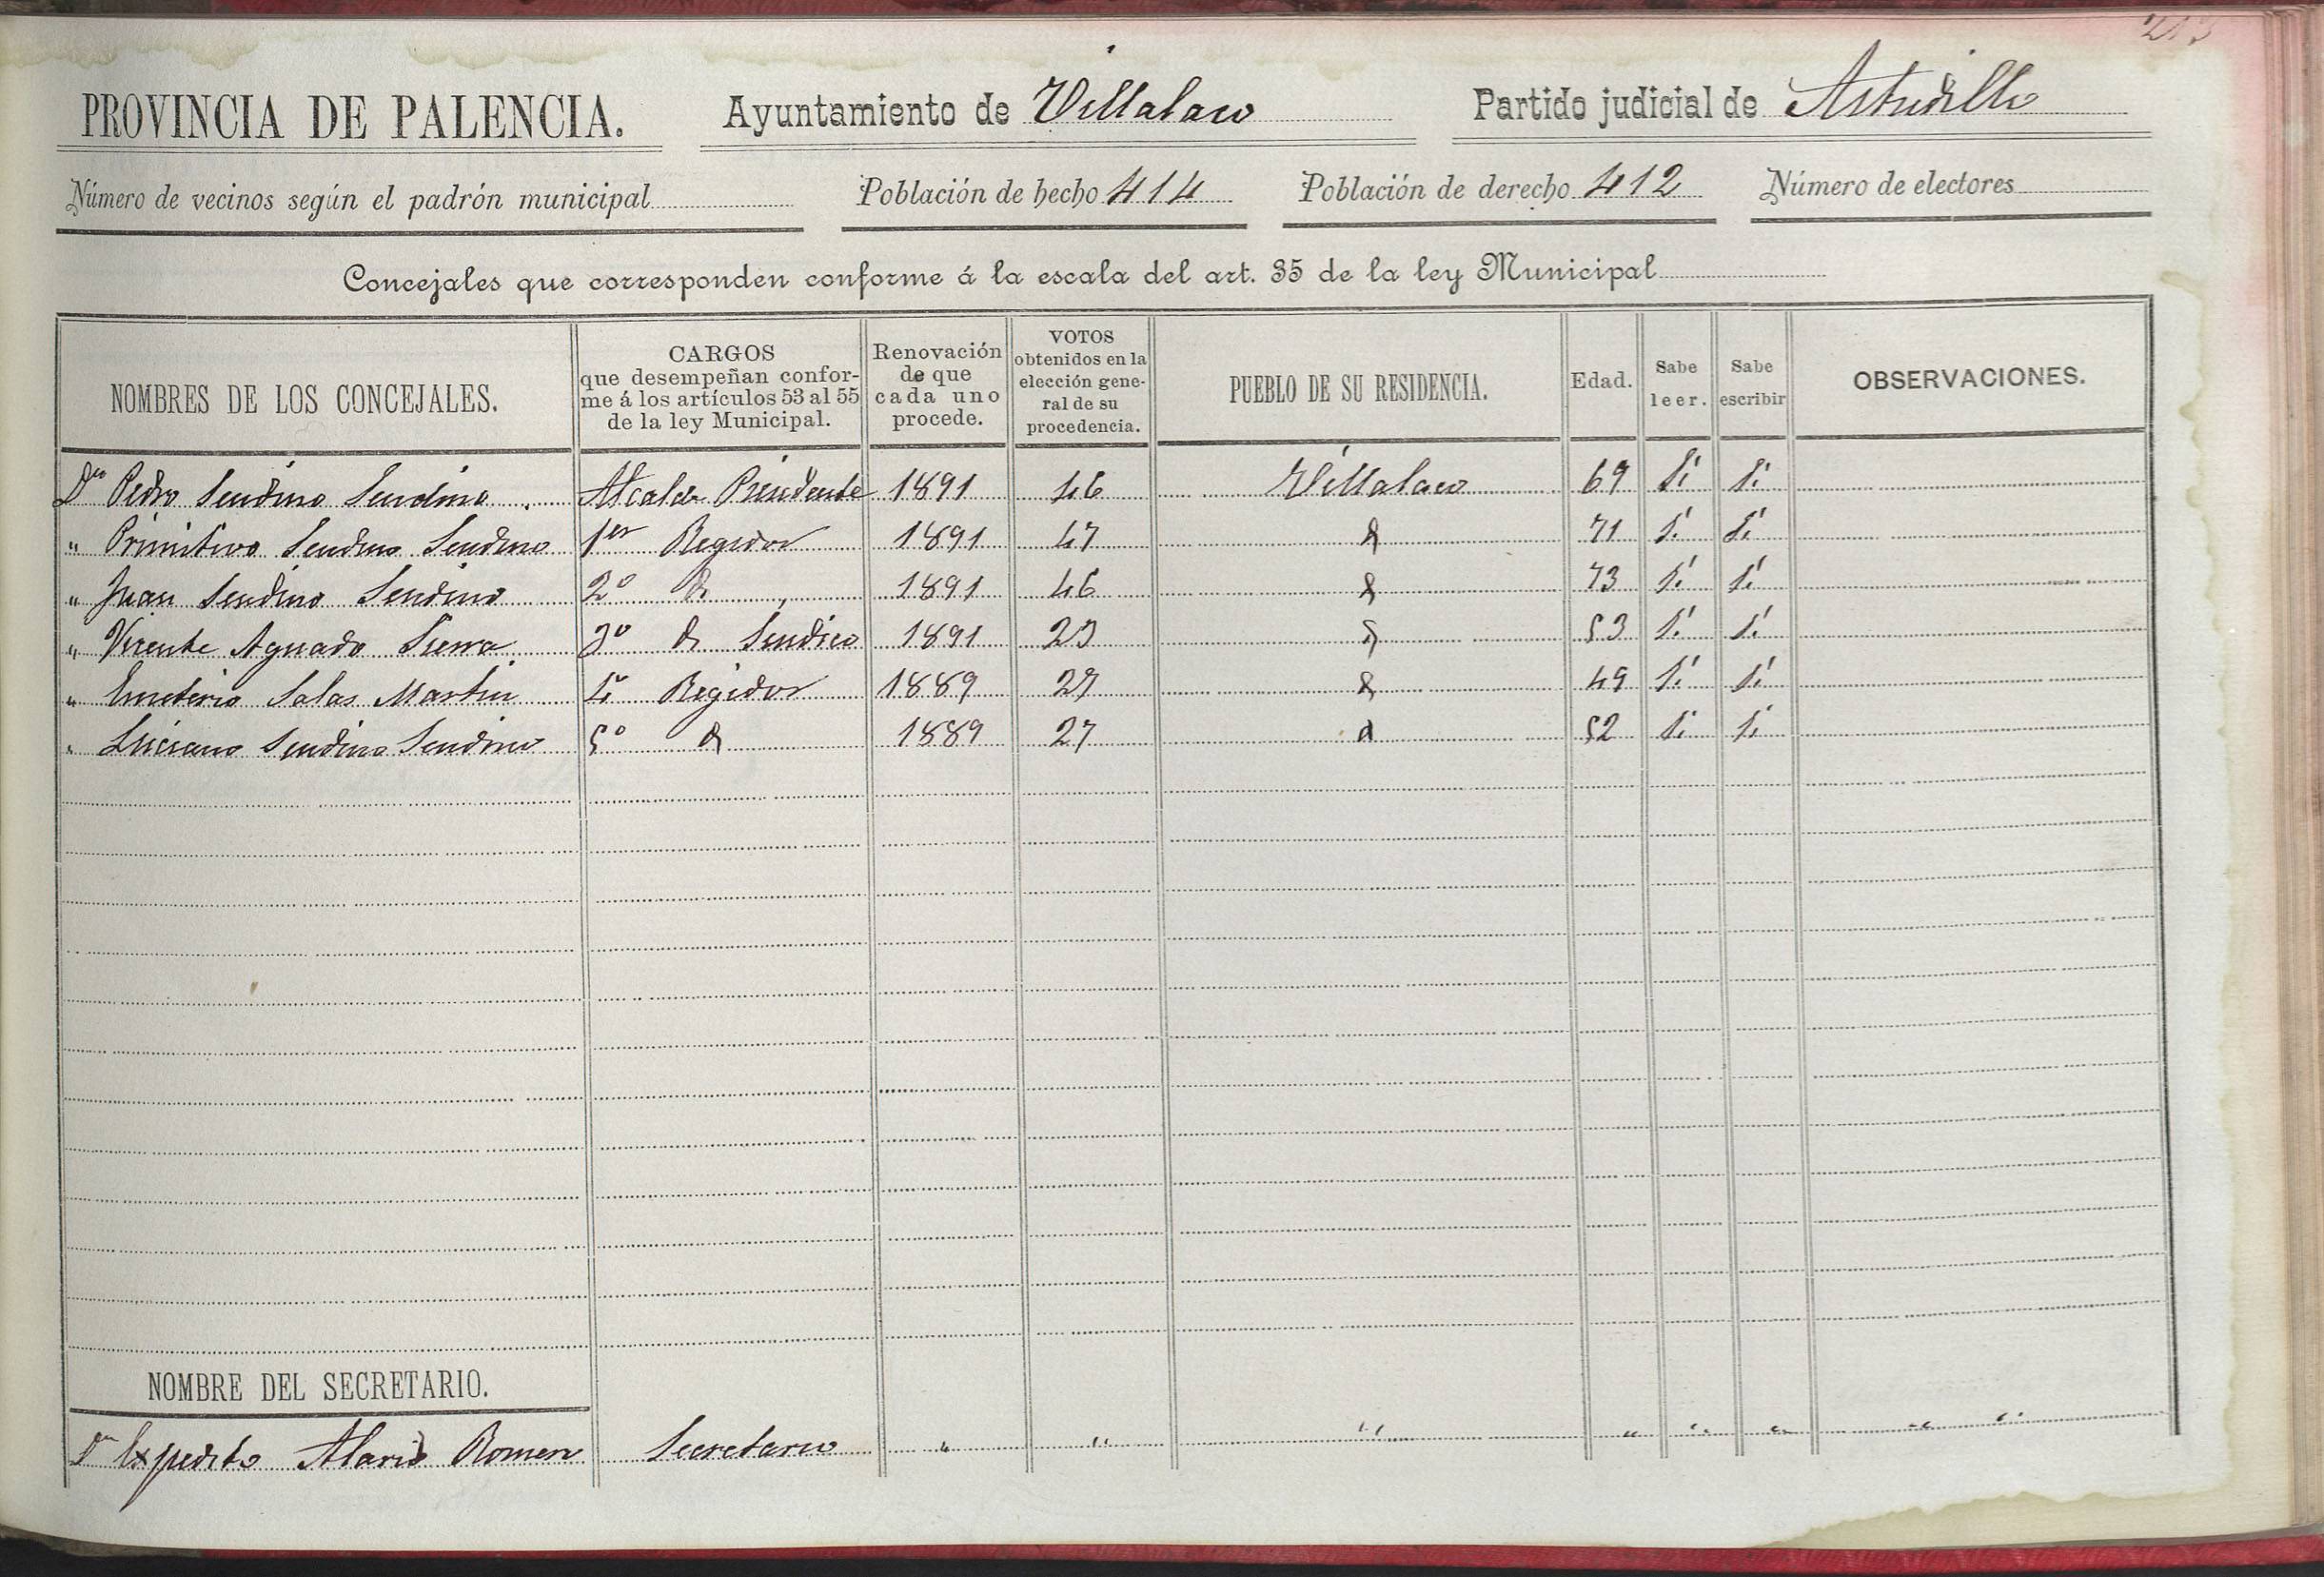 PROVINCIA DE PALENCIA. Ayuntamiento de Villalaco Partido judicial de Astudillo
Número de vecinos según el padrón municipal Población de hecho 414 Población de derecho 412 Número de electores
Concejales que corresponden conforme á la escala del art. 35 de la ley Municipal
NOMBRES DE LOS CONCEJALES. CARGOS que desempeñan conforme á los artículos 53 al 55 de la ley Municipal. Renovación de que cada uno procede. VOTOS obtenidos en la elección general de su procedencia. PUEBLO DE SU RESIDENCIA. Edad. Sabe leer. Sabe escribir OBSERVACIONES.
Dn Pedro Sendino Sendino Alcalde Presidente 1891 46 Villalaco 69 Si Si
" Primitivo Sendino Sendino 1er Regidor 1891 47 d 71 Si Si
" Juan Sendino Sendino 2o d 1891 46 d 73 Si Si
" Vicente Aguado Sierra 3o d Sindico 1891 23 d 53 Si Si
" Emeterio Salas Martin 4o Regidor 1889 27 d 49 Si Si
" Luciano Sendino Sendino 5o d 1889 27 d 52 Si Si
NOMBRE DEL SECRETARIO.
Dn Expedito Alario Romero Secretario " " " " " " " "